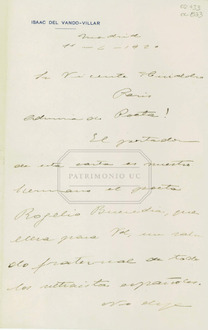 ISAAC DEL VANDO-VILLAR
Madrid
11-6-1920
Sr Vicente Huidobro
Paris
Admirado Poeta!
El portador
de esta carta es nuestro
hermano el poeta
PATRIMONIO UC
Rogelio Buendía, que
lleva para Vd, un salu-
do fraternal de todos
los ultraistas españoles.